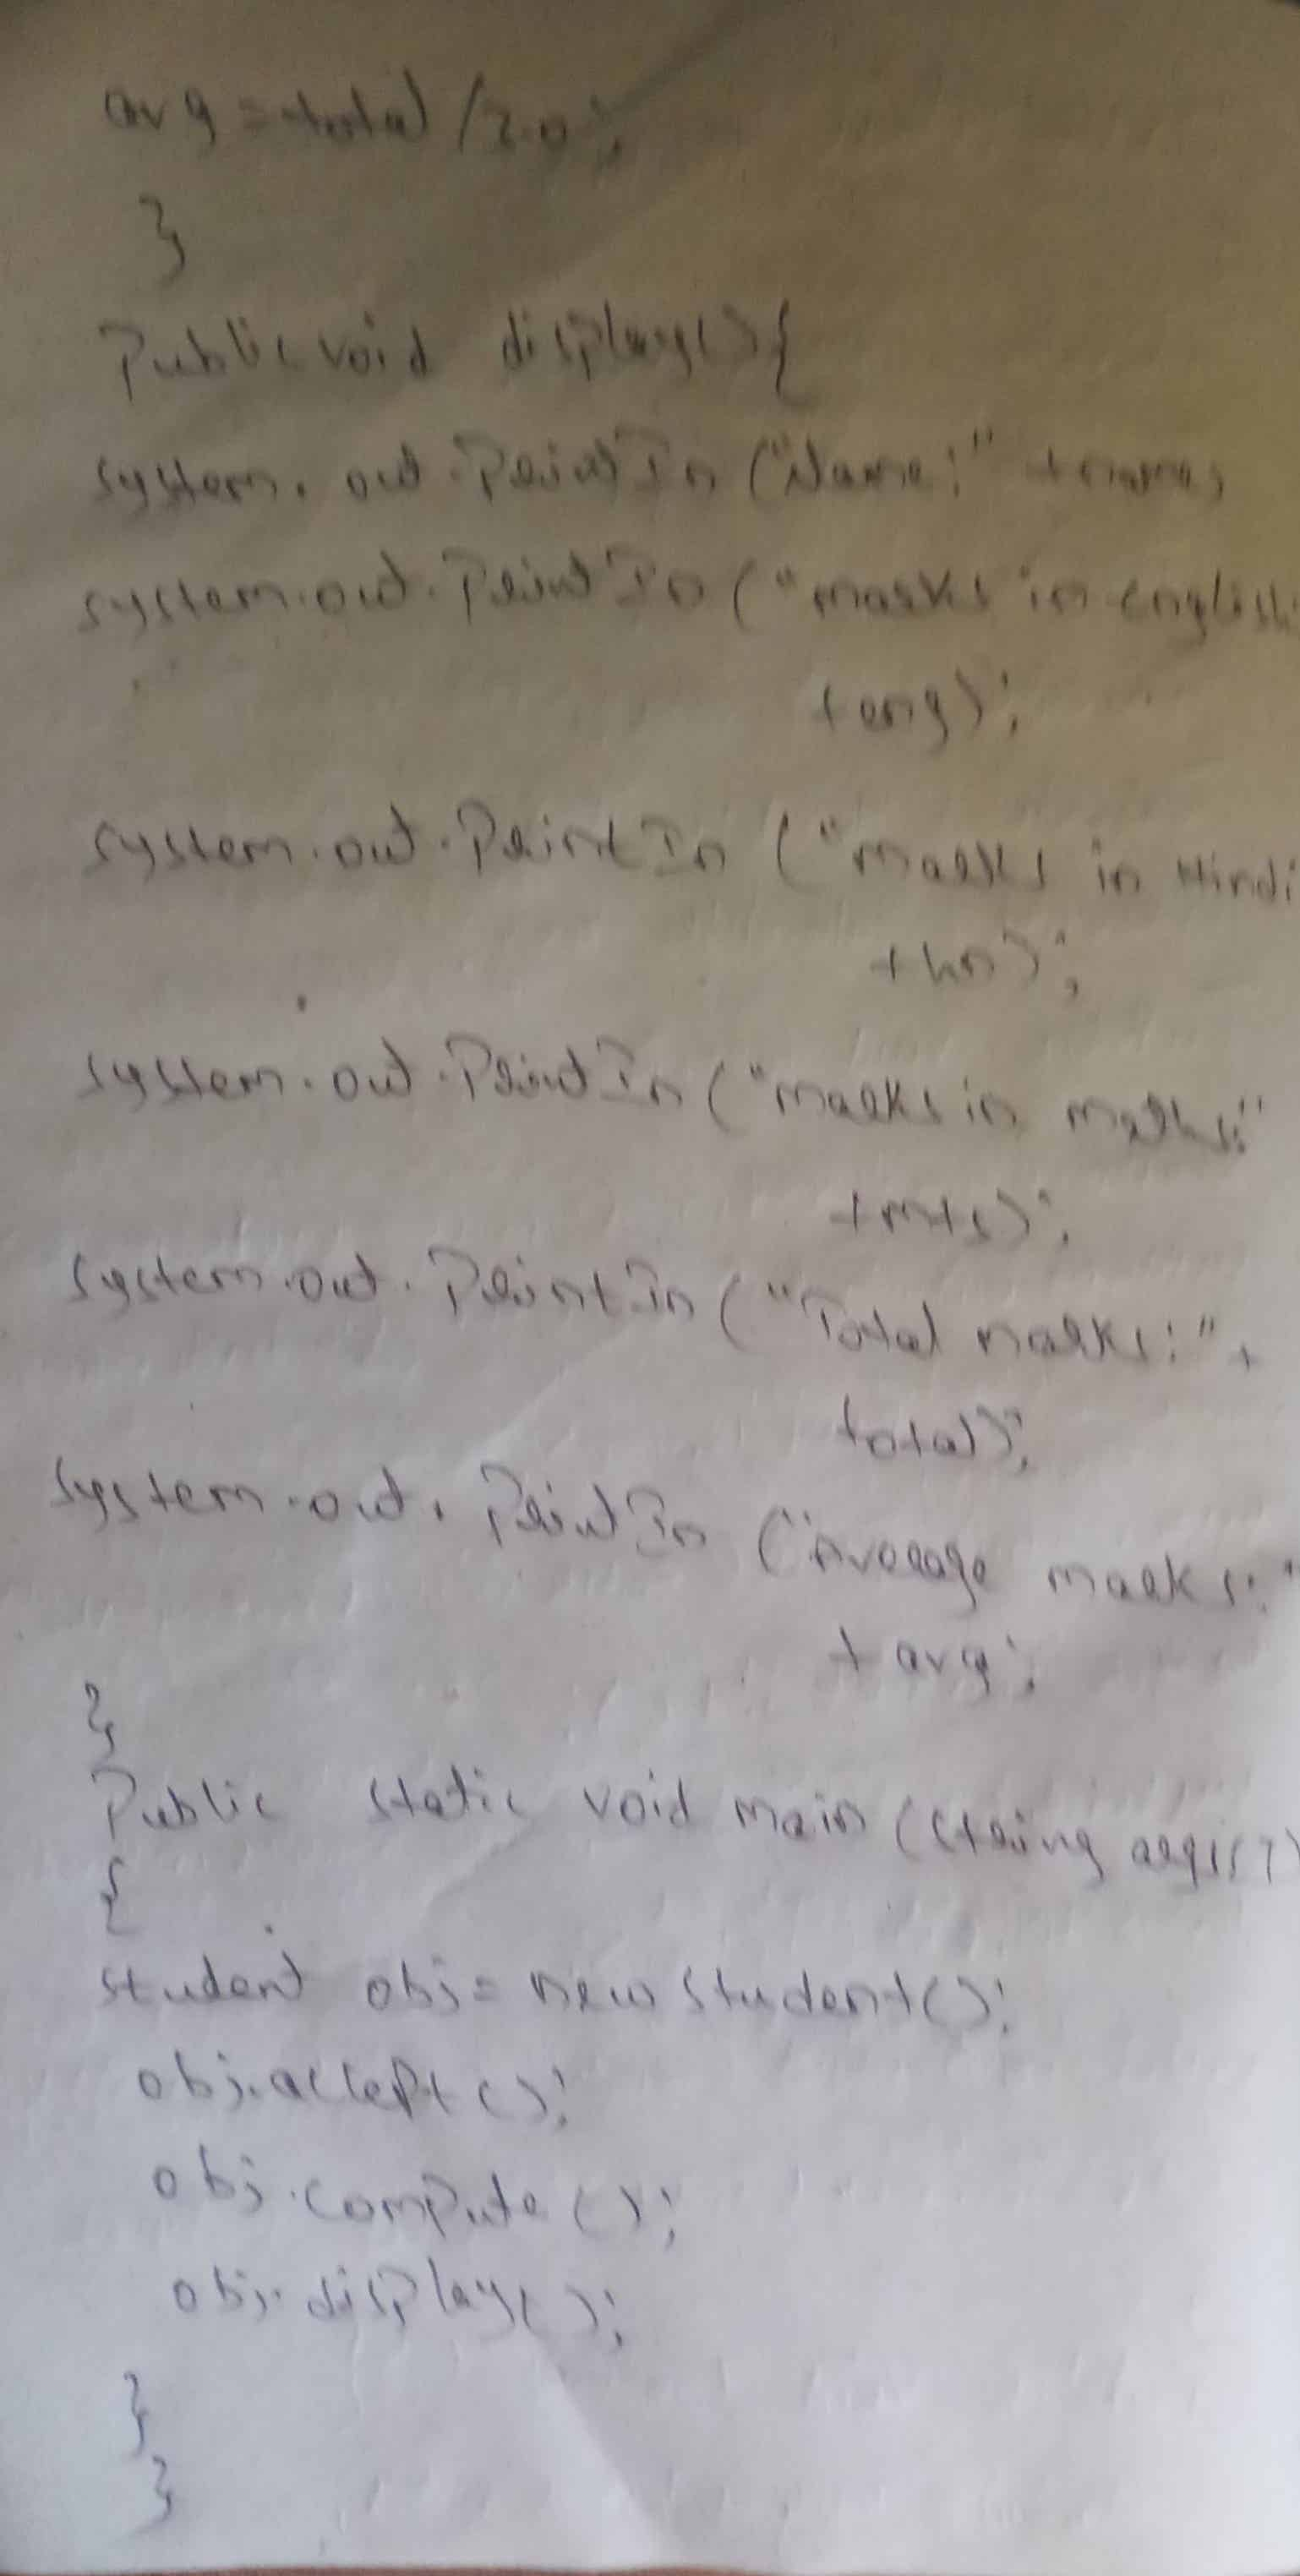 avg = total /3.0;
}
Public void display(){
system. out. Print In ("Name:" +name;
system.out. Print In ("marks in english:
+eng);
system.out. Print In ("marks in Hindi
+hn);
system.out. Print In ("marks in maths:"
+mts);
system.out. Print In ("Total marks:" +
total);
system.out. Print In ("Average marks:"
+ avg;
}
Public static void main (string args[])
{
student obj = new student();
obj.accept();
obj.compute();
obj.display();
}
}